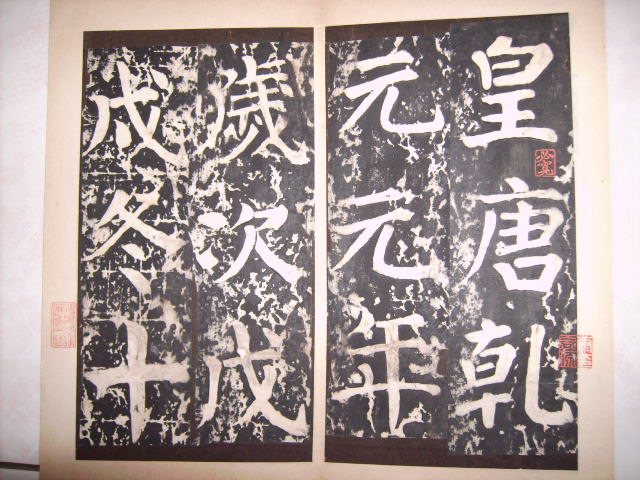 皇唐乾
元元年
歲次戊
戌冬十